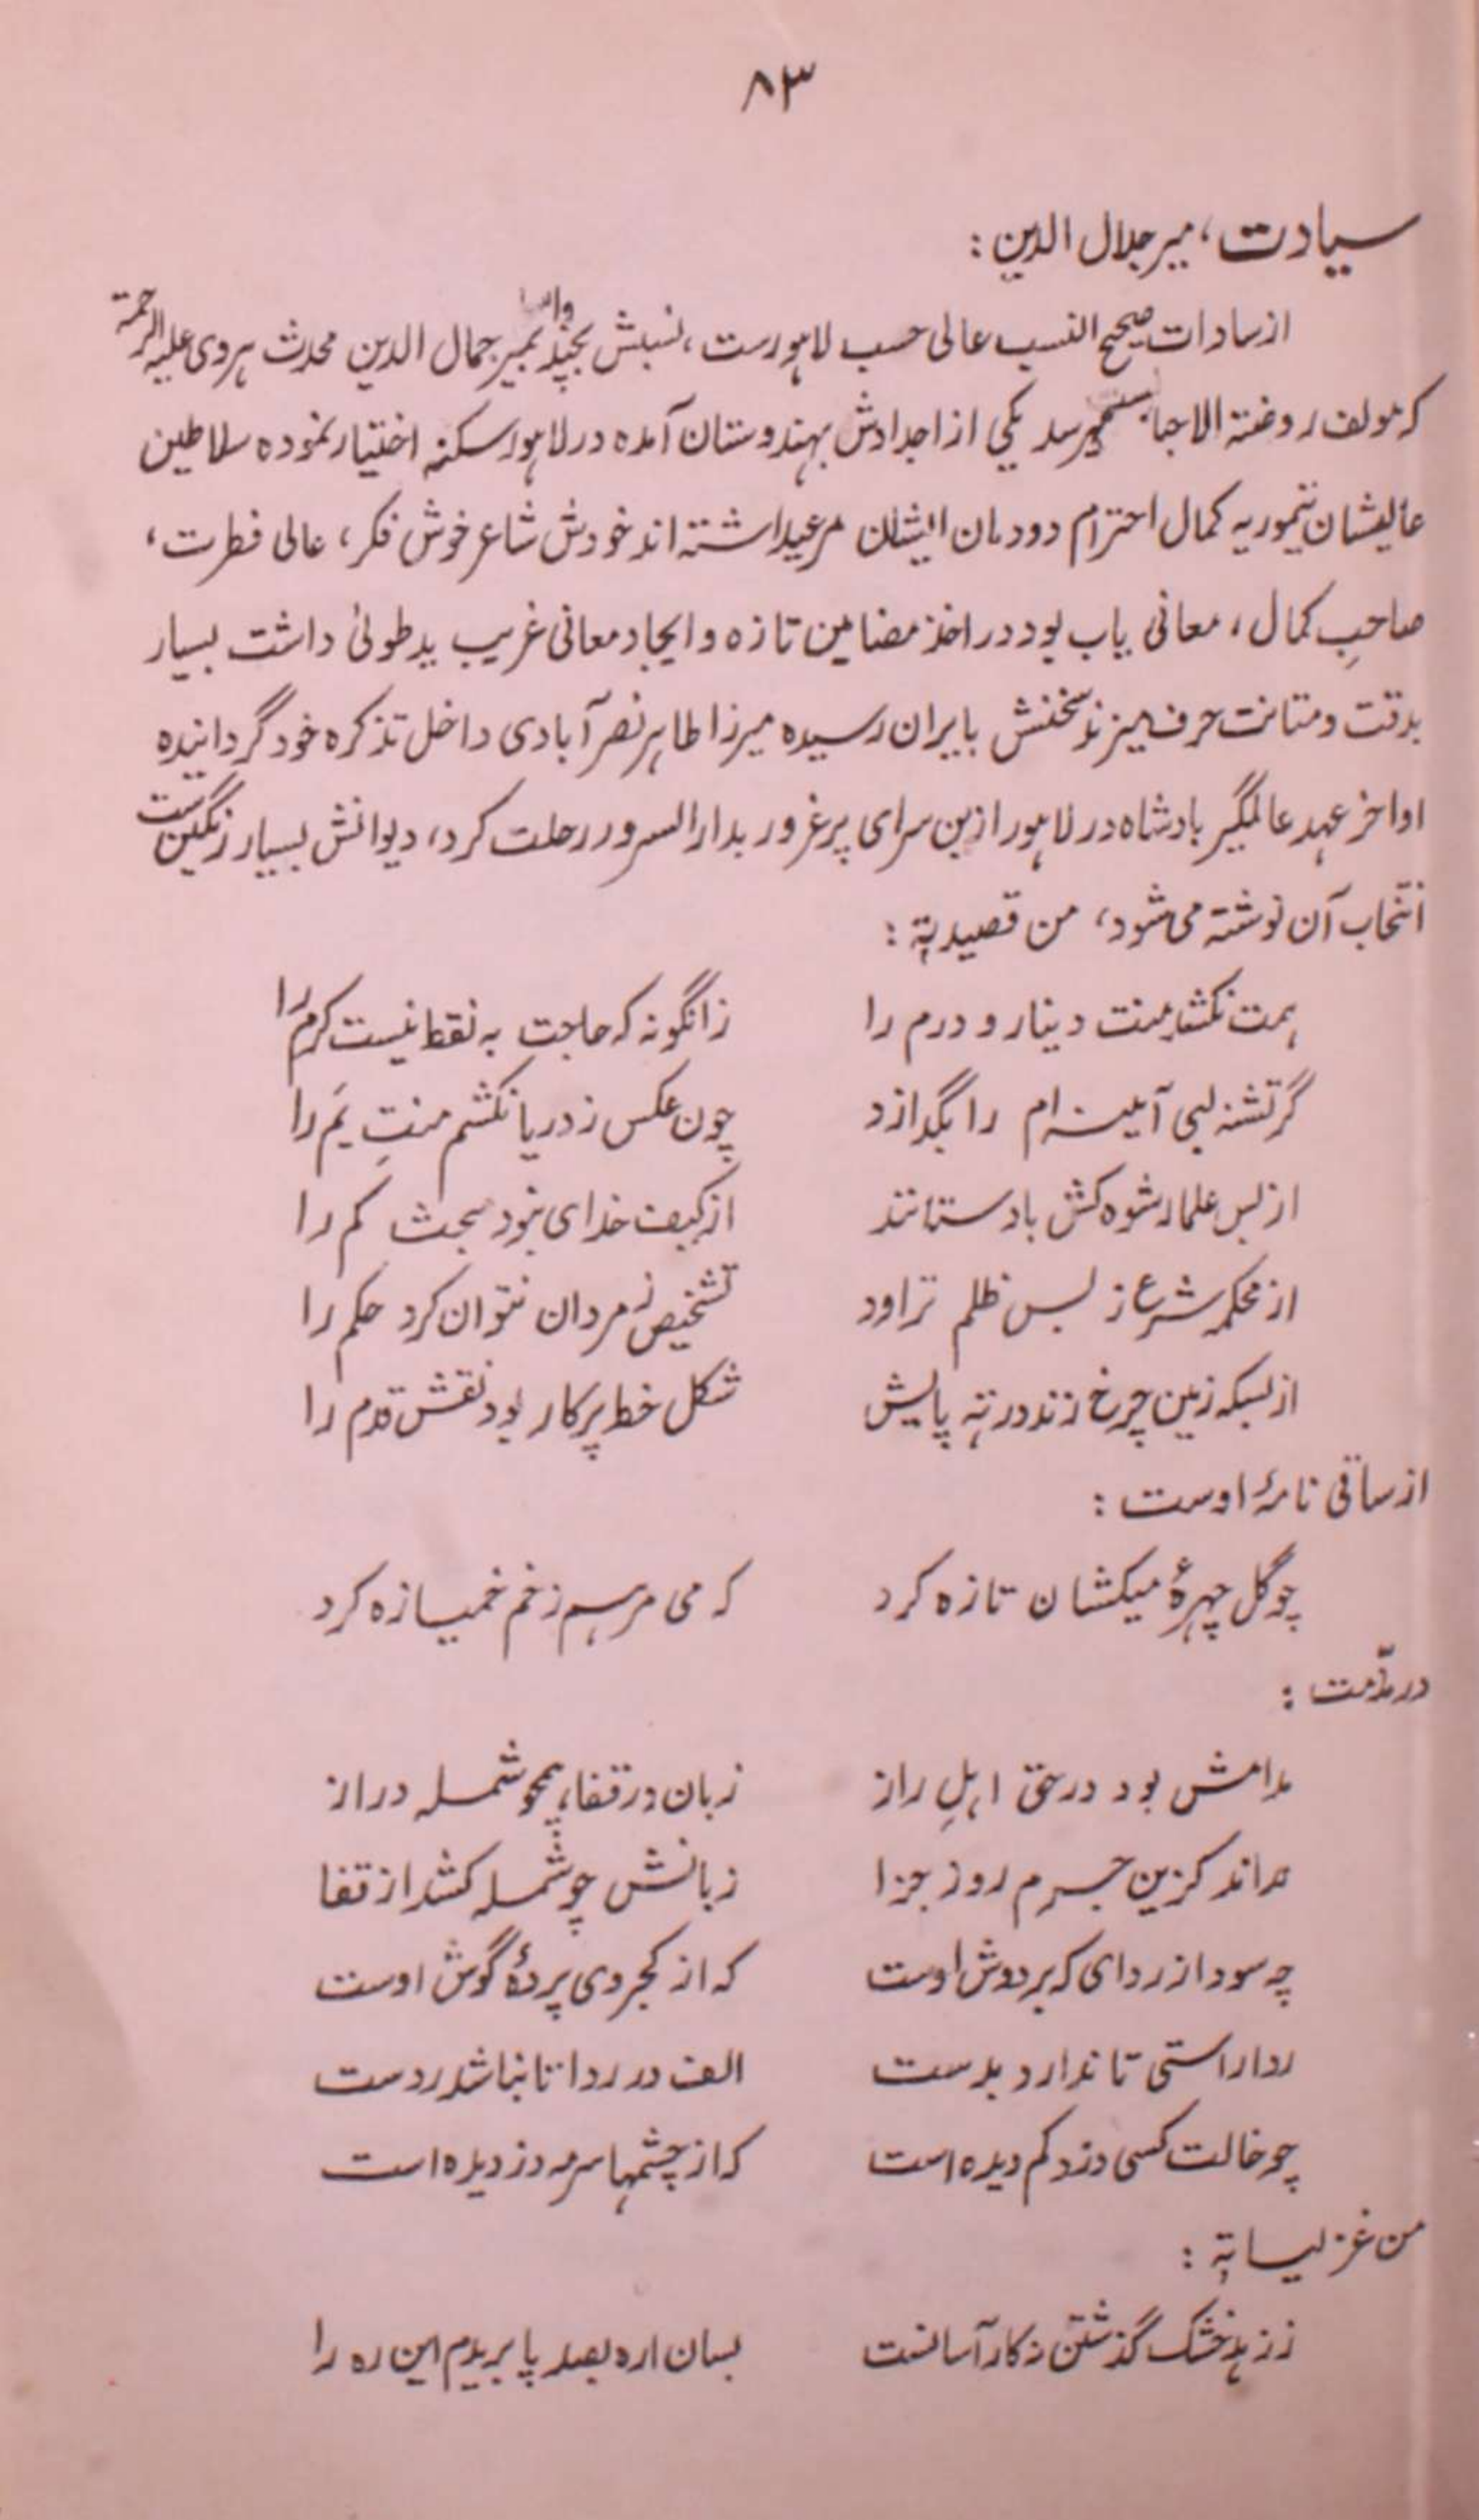 ۸۳
سیادت، میر جلال الدین :
از سادات صحیح النسب عالی حسب لاهورست، نسبش بچند واسطه بمیر جمال الدین محدث هروی علیه الرحمة
که مولف روضته الاحباست میرسد یکی از اجدادش بهندوستان آمده در لاهور سکنه اختیار نموده سلاطین
عالیشان تیموریه کمال احترام دودمان ایشان مرعیداشته اند خودش شاعر خوش فکر، عالی فطرت،
صاحبِ کمال، معانی یاب بود در اخذ مضامین تازه و ایجاد معانی غریب ید طولیٰ داشت بسیار
بدقت و متانت حرف میزند سخنش بایران رسیده میرزا طاهر نصر آبادی داخل تذکره خود گردانیده
اواخر عهد عالمگیر بادشاه در لاهور ازین سرای پر غرور بدار السرور رحلت کرد، دیوانش بسیار رنگین ست
انتخاب آن نوشته می شود، من قصیدیة :
همت نکشد منت دینار و درم را زانگونه که حاجت به نقط نیست کرم را
گر تشنه لبی آیینه ام را بگدازد چون عکس ز دریا نکشم منتِ یَم را
از بس علما رشوه کش باد ستانند از کیف خدای نبود بحث کم را
از محکمه شرع ز بس ظلم تراود تشخیص ز مردان نتوان کرد حکم را
از بسکه زمین چرخ زند در ته پایش شکل خط پرکار بود نقش قدم را
از ساقی نامۀ اوست :
چو گل چهرۀ میکشان تازه کرد که می مرهم زخم خمیازه کرد
در مذّمت :
مدامش بود در حق اهلِ راز زبان در قفا، همچو شمله دراز
نداند کزین جرم روز جزا زبانش چو شمله کشند از قفا
چه سود از ردای که بر دوش اوست که از کجروی پردۀ گوش اوست
ردا راستی تا ندارد بدست الف در ردا تا نباشد ردست
چو خالت کسی دزد کم دیده است که از چشمها سرمه دزدیده است
من غزلیاتة :
ز زهد خشک گذشتن ز کار آسانست بسان اره بصد پا بریدم این ره را